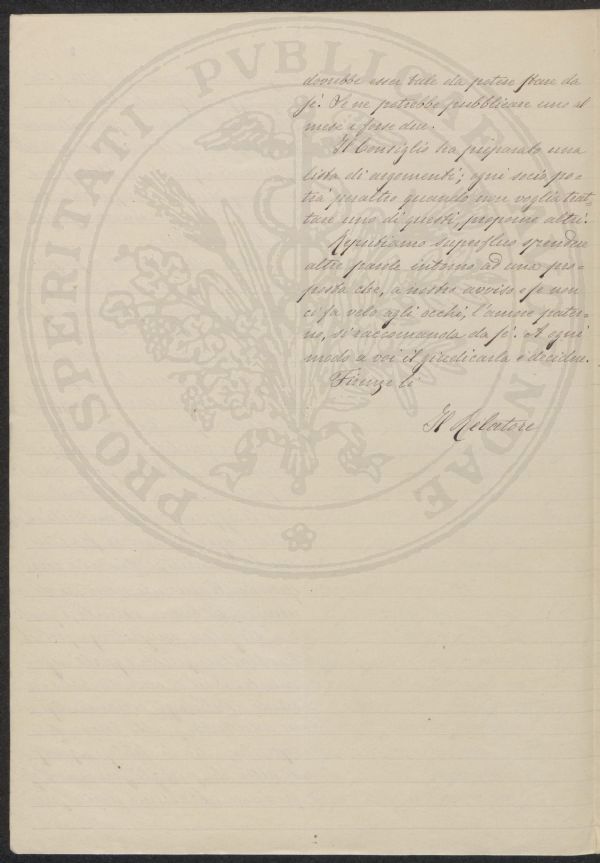 PROSPERITATI PVBLICAE AVGENDAE
dovrebbe esser tale da potere stare da
sé. Se ne potrebbe pubblicare uno al
mese e forse due.
Il Consiglio ha preparato una
lista di argomenti; ogni socio po-
trà peraltro quando non voglia trat-
tare uno di questi, proporne altri.
Reputiamo superfluo spendere
altre parole intorno ad una pro-
posta che, a nostro avviso e se non
ci fa velo agli occhi, l'amore pater-
no, si raccomanda da sé. A ogni
modo a voi il giudicarla e decidere.
Firenze li
Il Relatore